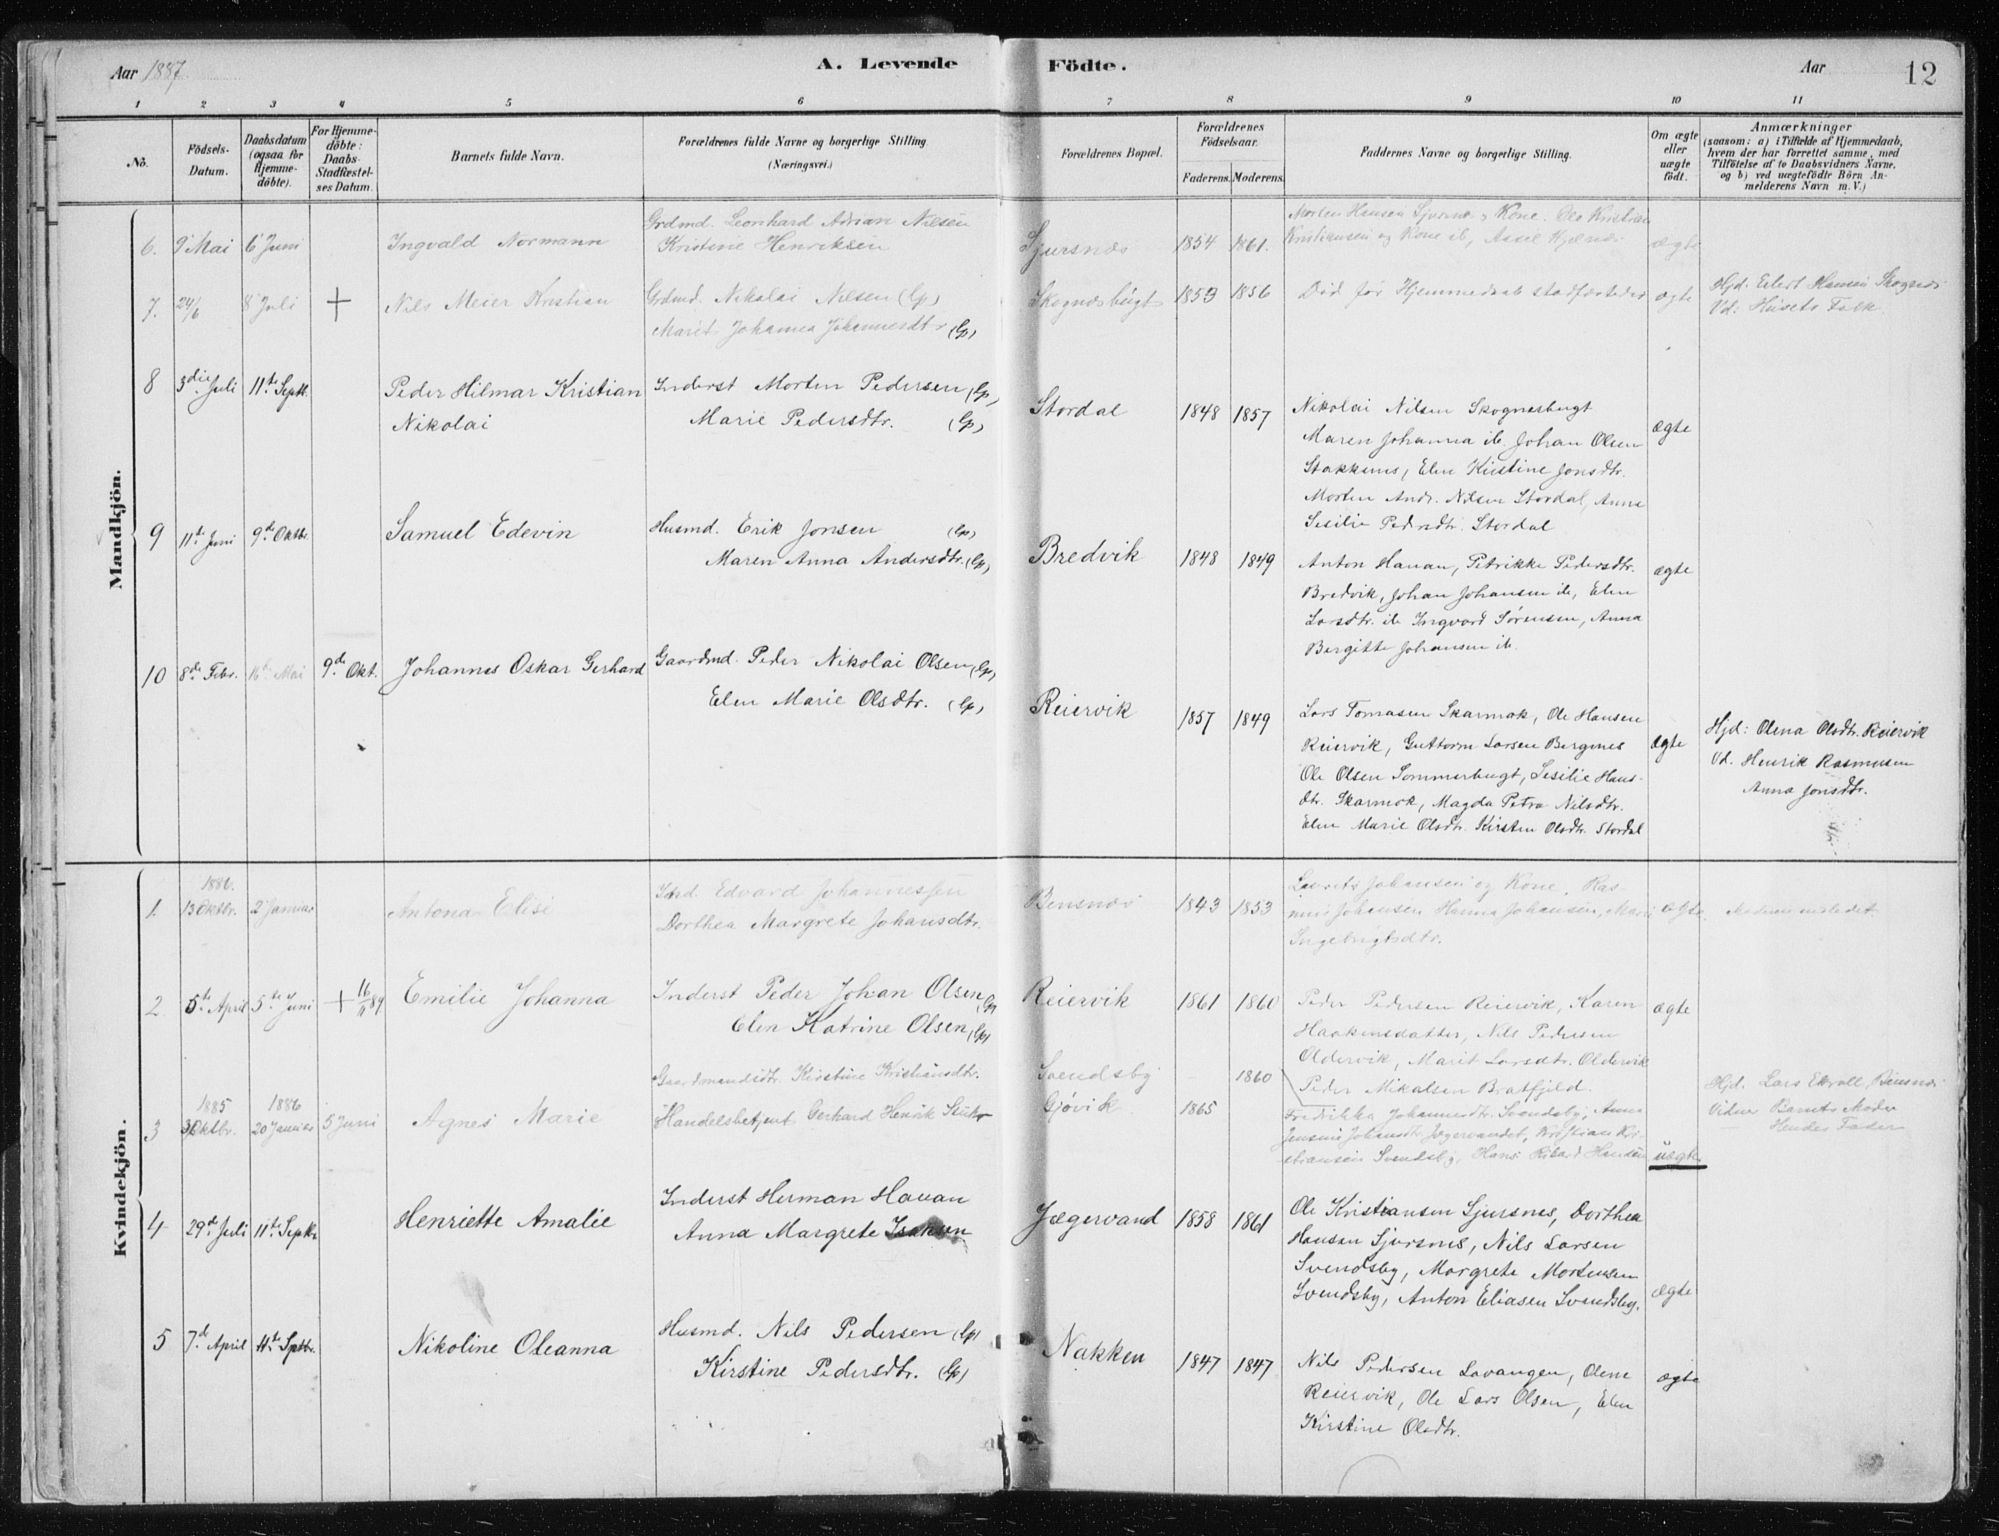 Aar 1887
A. Levende
Födte.
Aar
12
1 2 3 4 5 6 7 8 9 10 11
No.
Födsels-Datum.
Daabsdatum (ogsaa for Hjemme-döbte).
For Hjemme-döbte: Daabs-Stadfæstel-ses Datum.
Barnets fulde Navn.
Forældrenes fulde Navne og borgerlige Stilling (Næringsvei.)
Forældrenes Bopæl.
Forældrenes Födselsaar.
Faderens. Moderens.
Faddernes Navne og borgerlige Stilling.
Om ægte eller uægte födt.
Anmærkninger
(saasom: a) i Tilfælde af Hjemmedaab,
hvem der har forrettet samme, med
Tilföielse af to Daabsvidners Navne,
og b) ved uægtefödte Börn An-
melderens Navn m. V.)
Mandkjön.
6. 9 Mai 6 Juni
Ingvald Normann
Grdmd. Leonhard Adrian Nilsen
Kristine Henriksen
Sjursnæs 1854 1861.
Morten Hansen Sjursnæs Kone. Ole Kristian
Kristiansen og Kone ib,
ægte
7. 24/6 8 Juli +
Nils Meier Kristian
Grdmd. Nikolai Nilsen (Lp)
Marit Johanna Johannesdtr (Lp)
Skognæsbugt 1853 1856
Död før Hjemmedaab stadfæstedes
ægte
Hjd: Eilert Hansen Skognæs
Vd: Husets Folk.
8 3die Juli 11te Septb.
Peder Hilmar Kristian
Nikolai
Inderst Morten Pedersen (Lp)
Marie Pedersdtr. (Lp)
Stordal 1848 1857
Nikolai Nilsen Skognesbugt
Maren Johanna ib. Johan Olsen
Stakkenes, Elen Kirstine Jonsdtr.
Morten Andr. Nilsen Stordal, Anna
Sesilie Pedersdtr. Stordal
ægte
9 11te Juni 9de Oktbr.
Samuel Edevin
Husmd. Erik Jonsen (Lp)
Maren Anna Andersdtr. (Lp)
Bredvik 1848 1849
Anton Hanan, Petrikke Pedersdtr.
Bredvik, Johan Johansen ib, Elen
Larsdtr. ib Ingvard Sørensen, Anna
Bergitte Johansen ib.
ægte
10 8de Febr. 16de Mai 9de Okt.
Johannes Oskar Gerhard
Gaardmd. Peder Nikolai Olsen (Lp)
Elen Marie Olsdtr. (Lp)
Reiervik 1857 1849
Lars Tomasen Skarmok, Ole Hansen
Reiervik, Guttorm Larsen Bergnes
Ole Olsen Sommerbugt, Sesilie Hans-
dtr. Skarmok, Magda Petra Nilsdtr.
Elen Marie Olsdtr. Kirsten Olsdtr. Stordal
ægte
Hjd: Olena Olsdtr. Reiervik
Vd. Henrik Rasmusen
Anna Jonsdtr.
Kvindekjön.
1886.
1. 13 Oktbr. 2 Januar
Antona Elise
Edvard Johannessen
Dorthea Margrete Johansdtr.
Bensnæs 1843 1853
Laurits Johansen og Kone. Ras-
mus Johansen Hanna Johansen, Mari
Ingebrigtsdtr.
ægte
Moderen
2 5te April 5te Juni + 16/11 89
Emilie Johanna
Inderst Peder Johan Olsen (Lp)
Elen Katrine Olsen (Lp)
Reiervik 1861 1860
Peder Pedersen Reiervik, Karen
Haakensdatter, Nils Pedersen
Oldervik, Marit Larsdtr. Oldervik
Peder Mikalsen Bratfjeld.
ægte
1885 1886
3 Oktbr. 20 Januar 5 Juni
Agnes Marie
Gaardmandsdtr. Kirstine Kristiansdtr.
Handelsbetjent Gerhard Henrik
Svendsby 1860
Gjövik 1865
Fredrikke Johannesdtr. Svendsby, Anna
Jensine Johansdtr Jægervandet, Kristian Kri-
stiansen Svendsby, Hans Rikard Hansen
uægte
Hjd. Lars Bensnæs
Vidner Barnets Moder
Hendes Fader
4 29de Juli 11te Septbr
Henriette Amalie
Inderst Herman Hanan
Anna Margrete Isaksen
Jægervand 1858 1861
Ole Kristiansen Sjursnes, Dorthea
Hansen Sjursnes, Nils Larsen
Svendsby, Margrete Mortensen
Svendsby, Anton Eliasen Svendsby.
ægte
5 7de April 11te Septbr.
Nikoline Oleanna
Husmd. Nils Pedersen (Lp)
Kirstine Pedersdtr. (Lp)
Nakken 1847 1847
Nils Pedersen Lavangen, Olene
Reiervik, Ole Lars Olsen, Elen
Kirstine Olsdtr.
ægte